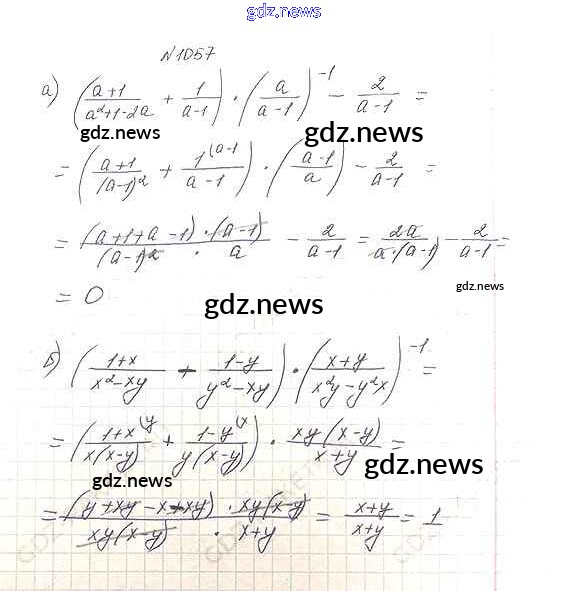 gdz.news
N1057
а) ((a+1)/(a²+1-2a) + 1/(a-1)) · (a/(a-1))⁻¹ - 2/(a-1) =
gdz.news gdz.news
= ((a+1)/(a-1)² + 1^(a-1)/(a-1)) · ((a-1)/a) - 2/(a-1) =
= (a+1+a-1)·(a-1)/((a-1)²·a) - 2/(a-1) = 2a/(a·(a-1)) - 2/(a-1) =
gdz.news
= 0
gdz.news
б) ((1+x)/(x²-xy) + (1-y)/(y²-xy)) · ((x+y)/(x²y-y²x))⁻¹ =
= ((1+x)^(y/(x(x-y)) + (1-y)^(x/(y(x-y))) · xy(x-y)/(x+y) =
gdz.news
gdz.news
= (y+xy-x+xy)·xy(x-y)/(xy(x-y)·x+y) = (x+y)/(x+y) = 1